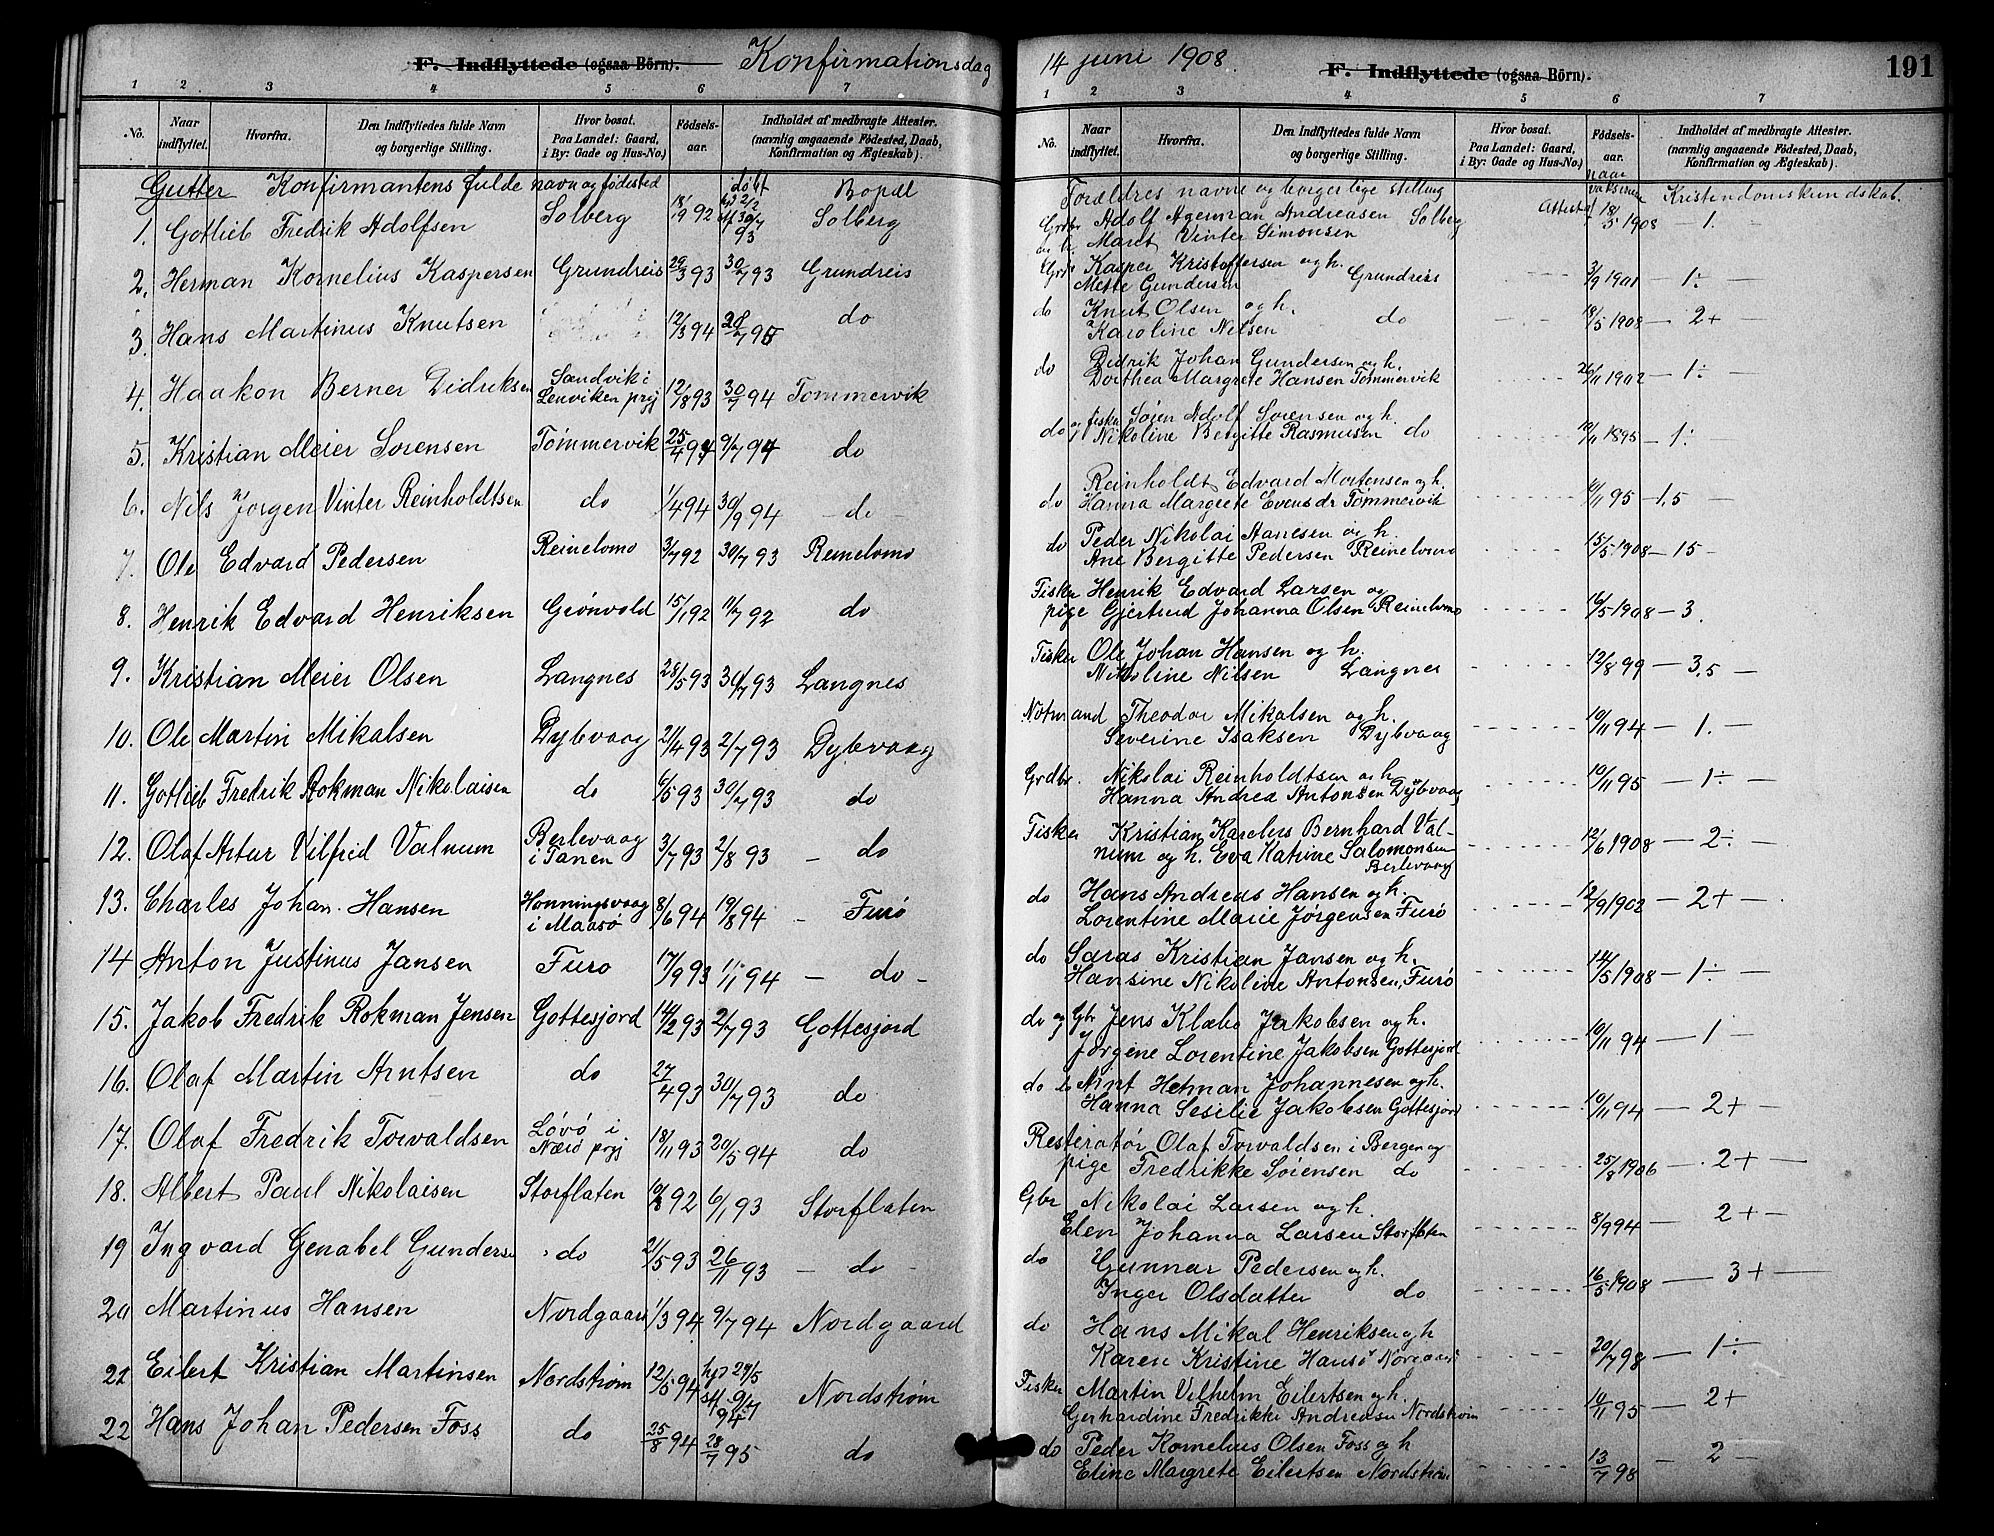 F. Indflyttede (ogsaa Börn). Konfirmationsdag
1 2 3 4 5 6 7
No. Naar indflyttet. Hvorfra. Den Indflyttedes fulde Navn og borgerlige Stilling. Hvor bosat. Paa Landet: Gaard, i By: Gade og Hus-No.) Fødselsaar. Indholdet af medbragte Attester. (navnlig angaaende Fødested, Daab, Konfirmation og Ægteskab).
Gutter Konfirmantens fulde navn og fødested døbt Bopæl
1. Gotlieb Fredrik Adolfsen Solberg 18/19 92 Solberg
2. Herman Kornelius Kaspersen Grundreis 29/3 93 30/7 93 Grundreis
3. Hans Martinus Knutsen 12/3 94 28/7 95 do
4. Haakon Berner Didriksen Sandvik i Lenviken prgj 12/8 93 30/7 94 Tømmervik
5. Kristian Meier Sørensen Tømmervik 25/4 94 9/7 94 do
6. Nils Jørgen Vinter Reinholdtsen do 1/4 94 30/9 94 - do -
7. Ole Edvard Pedersen Reinelvmo 3/7 92 30/7 93 Reinelvmo
8. Henrik Edvard Henriksen Grönvold 15/1 92 11/7 92 do
9. Kristian Meier Olsen Langnes 28/5 93 30/7 93 Langnes
10. Ole Martin Mikalsen Dybvaag 21/4 93 2/7 93 Dybvaag
11. Gotlieb Fredrik Rokman Nikolaisen do 6/5 93 30/7 93 do
12. Olaf Artur Vilfred Valnum Berlevaag i Tanen 3/7 93 2/8 93 - do
13. Charles Johan Hansen Honningsvaag i Maasø 8/6 94 19/8 94 - Furø
14 Anton Justinus Jansen Furø 17/9 93 1/1 94 - do -
15. Jakob Fredrik Rokman Jensen Gottesjord 14/2 93 2/7 93 Gottesjord
16. Olaf Martin Arntsen do 27/4 93 30/7 93 do
17. Olaf Fredrik Torvaldsen Løvø i Nærø prgj 18/11 93 20/5 94 do
18. Albert Paul Nikolaisen Storflaten 10/8 92 6/1 93 Storflaten
19 Ingvard Genabel Gunders do 21/5 93 26/11 93 - do -
20 Martinus Hansen Nordgaard 1/3 94 9/7 94 Nordgaard
21 Eilert Kristian Martinsen Nordstrøm 12/5 94 hjd 27/5 st. 9/7 94 Nordstrøm
22 Hans Johan Pedersen Foss do 25/8 94 28/7 95 do
14 juni 1908. F. Indflyttede (ogsaa Börn). 191
1 2 3 4 5 6 7
No. Naar indflyttet. Hvorfra. Den Indflyttedes fulde Navn og borgerlige Stilling. Hvor bosat. Paa Landet: Gaard, i By: Gade og Hus-No.) Fødselsaar. Indholdet af medbragte Attester. (navnlig angaaende Fødested, Daab, Konfirmation og Ægteskab).
Forældres navne og borgerlige stilling naar vaksineret Kristendomskundskab.
Grdbr Adolf Ageman Andreasen Solberg Attest 18/5 1908 - 1. -
Maret Vinter Simonsen
Grdb Kasper Kristoffersen og h. Grundreis 3/9 1901 - 1÷ -
Mette Gundersen
do Knut Olsen og h. do 18/5 1908 - 2+ -
Karoline Nilsen
do Didrik Johan Gundersen og h. 26/11 1902 - 1÷ -
Dorthea Margrete Hansen Tømmervik
do og fisker Søren Adolf Sørensen og h. 10/11 1895 - 1÷ -
Nikoline Bergitte Rasmusen do
Reinholdt Edvard Mortensen og h.
do Hanna Margrete Evensdr Tømmervik 10/11 95 - 1,5 -
do Peder Nikolai Hansen og h. 15/5 1908 - 15 -
Ane Bergitte Pedersen Reinelvmo
Fisker Henrik Edvard Larsen og
pige Gjertrud Johanna Olsen Reinelvmo 16/5 1908 - 3.
Fisker Ole Johan Hansen og h. 12/8 99 - 3,5 -
Nikoline Nilsen Langnes
Notmand Theodor Mikalsen og h. 10/11 94 - 1. -
Severine Isaksen Dybvaag
Grdbr. Nikolai Reinholdtsen og h 10/11 95 - 1÷ -
Hanna Andrea Antonsen Dybvaag
Fisker Kristian Karelius Bernhard Valnum og h. Eva Katrine Salomonsen 12/6 1908 - 2÷ -
Berlevaag
do Hans Andreas Hansen og h. 12/9 1902 - 2+ -
Lorentine Marie Jørgensen Furø
do Saras Kristian Jansen og h. 14/5 1908 - 1÷ -
Hansine Nikoline Antonsen, Furø
do og Gbr Jens Klæbo Jakobsen og h. 10/11 94 - 1 -
Jørgine Lorentine Jakobsen Gottesjord
do Arnt Herman Johannesen og h.
Hanna Sesilie Jakobsen Gottesjord 10/11 94 - 2+ -
Restiratør Olaf Torvaldsen i Bergen og
pige Fredrikke Sørensen do 25/8 1906 - 2+ -
Gbr Nikolai Larsen og h.
Elen Johanna Larsen Storflaten 8/9 94 - 2+ -
do Gunnar Pedersen og h. 16/5 1908 - 3+ -
Inger Olsdatter do
do Hans Mikal Henriksen og h
Karen Kristine Hans 20/7 98 - 1÷ -
Fisker Martin Vilhelm Eilertsen og h. 14/11 95 - 2+
Gerhardine Fredrikke Andreasen Nordstrøm
do Peder Kornelius Olsen Foss og h
Eline Margrete Eilertsen Nordstrøm 13/7 98 - 2 -